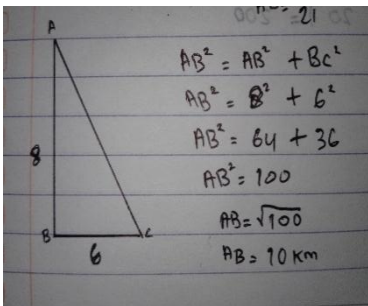 21
A
AB² = AB² + BC²
AB² = 8² + 6²
8
AB² = 64 + 36
AB² = 100
AB = √100
B
C
6
AB = 10 Km